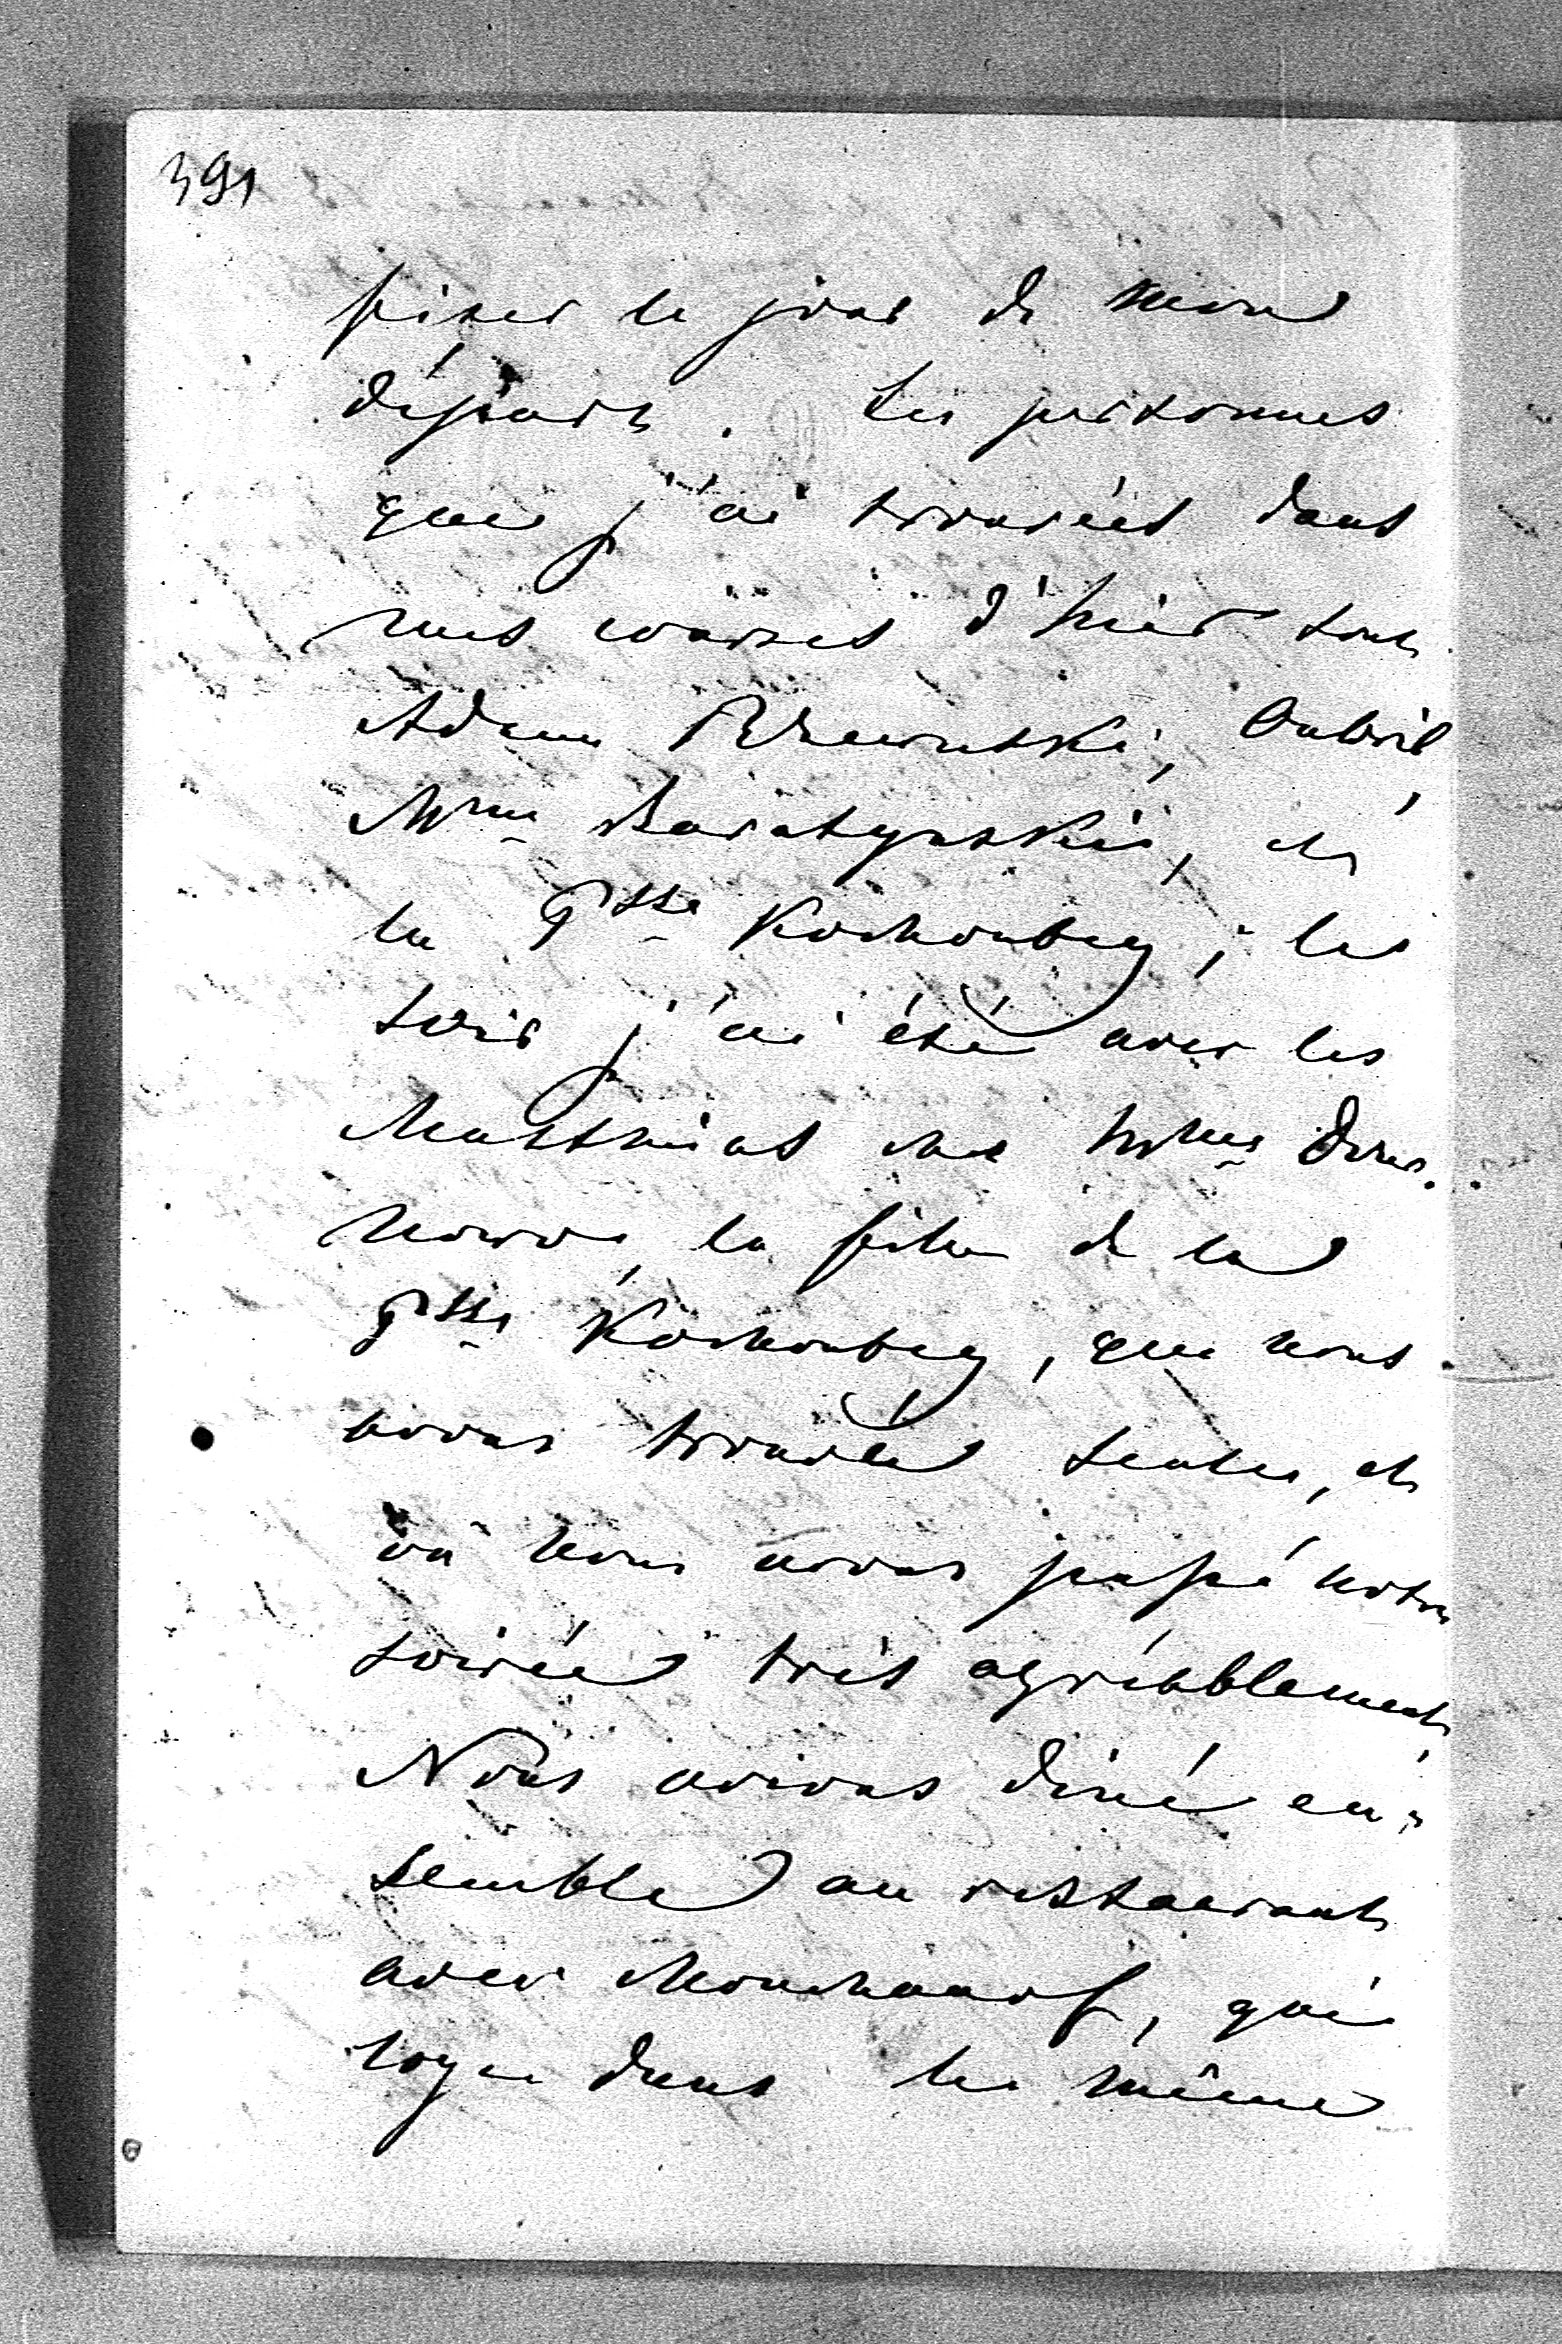 391
fixer le jour de mon
départ. Les personnes
que j'ai trouvées dans
mes courses d'hier sont
Adam Rzewuski, Gabriel,
Mme Baratynskie, et
la Psse Kotchoubey; le
soir j'ai été avec les
Matthias chez Mme Dour-
nowo, la fille de la
Psse Kotchoubey, que nous
avons trouvée seule, et
où nous avons passé notre
soirée très agréablement
Nous avions diné en-
semble au restaurant
avec Mouchanoff, qui
loge dans le même